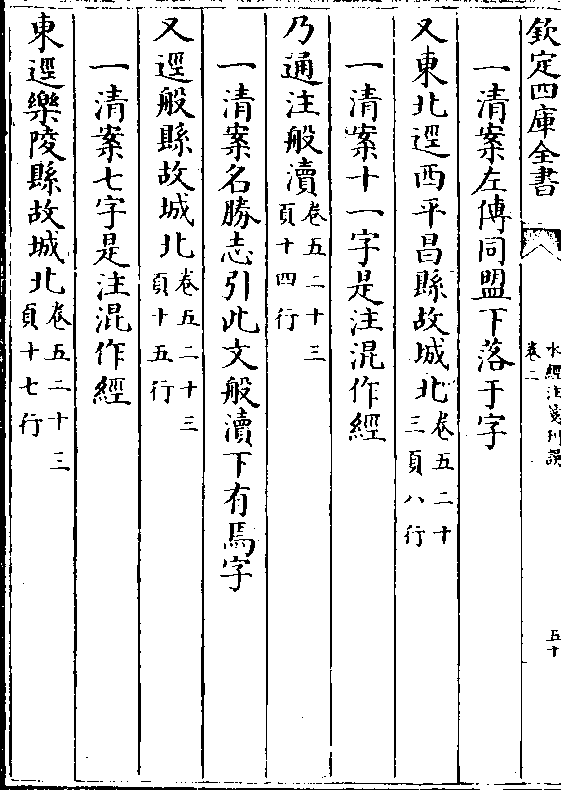 欽定四庫全書
水經注箋刊誤
卷二
五十
一清案左傳同盟下落于字
又東北逕西平昌縣故城北卷五二十
三頁八行
一清案十一字是注混作經
乃通注般瀆卷五二十三
頁十四行
一清案名勝志引此文般瀆下有焉字
又逕般縣故城北卷五二十三
頁十五行
一清案七字是注混作經
東逕樂陵縣故城北卷五二十三
頁十七行